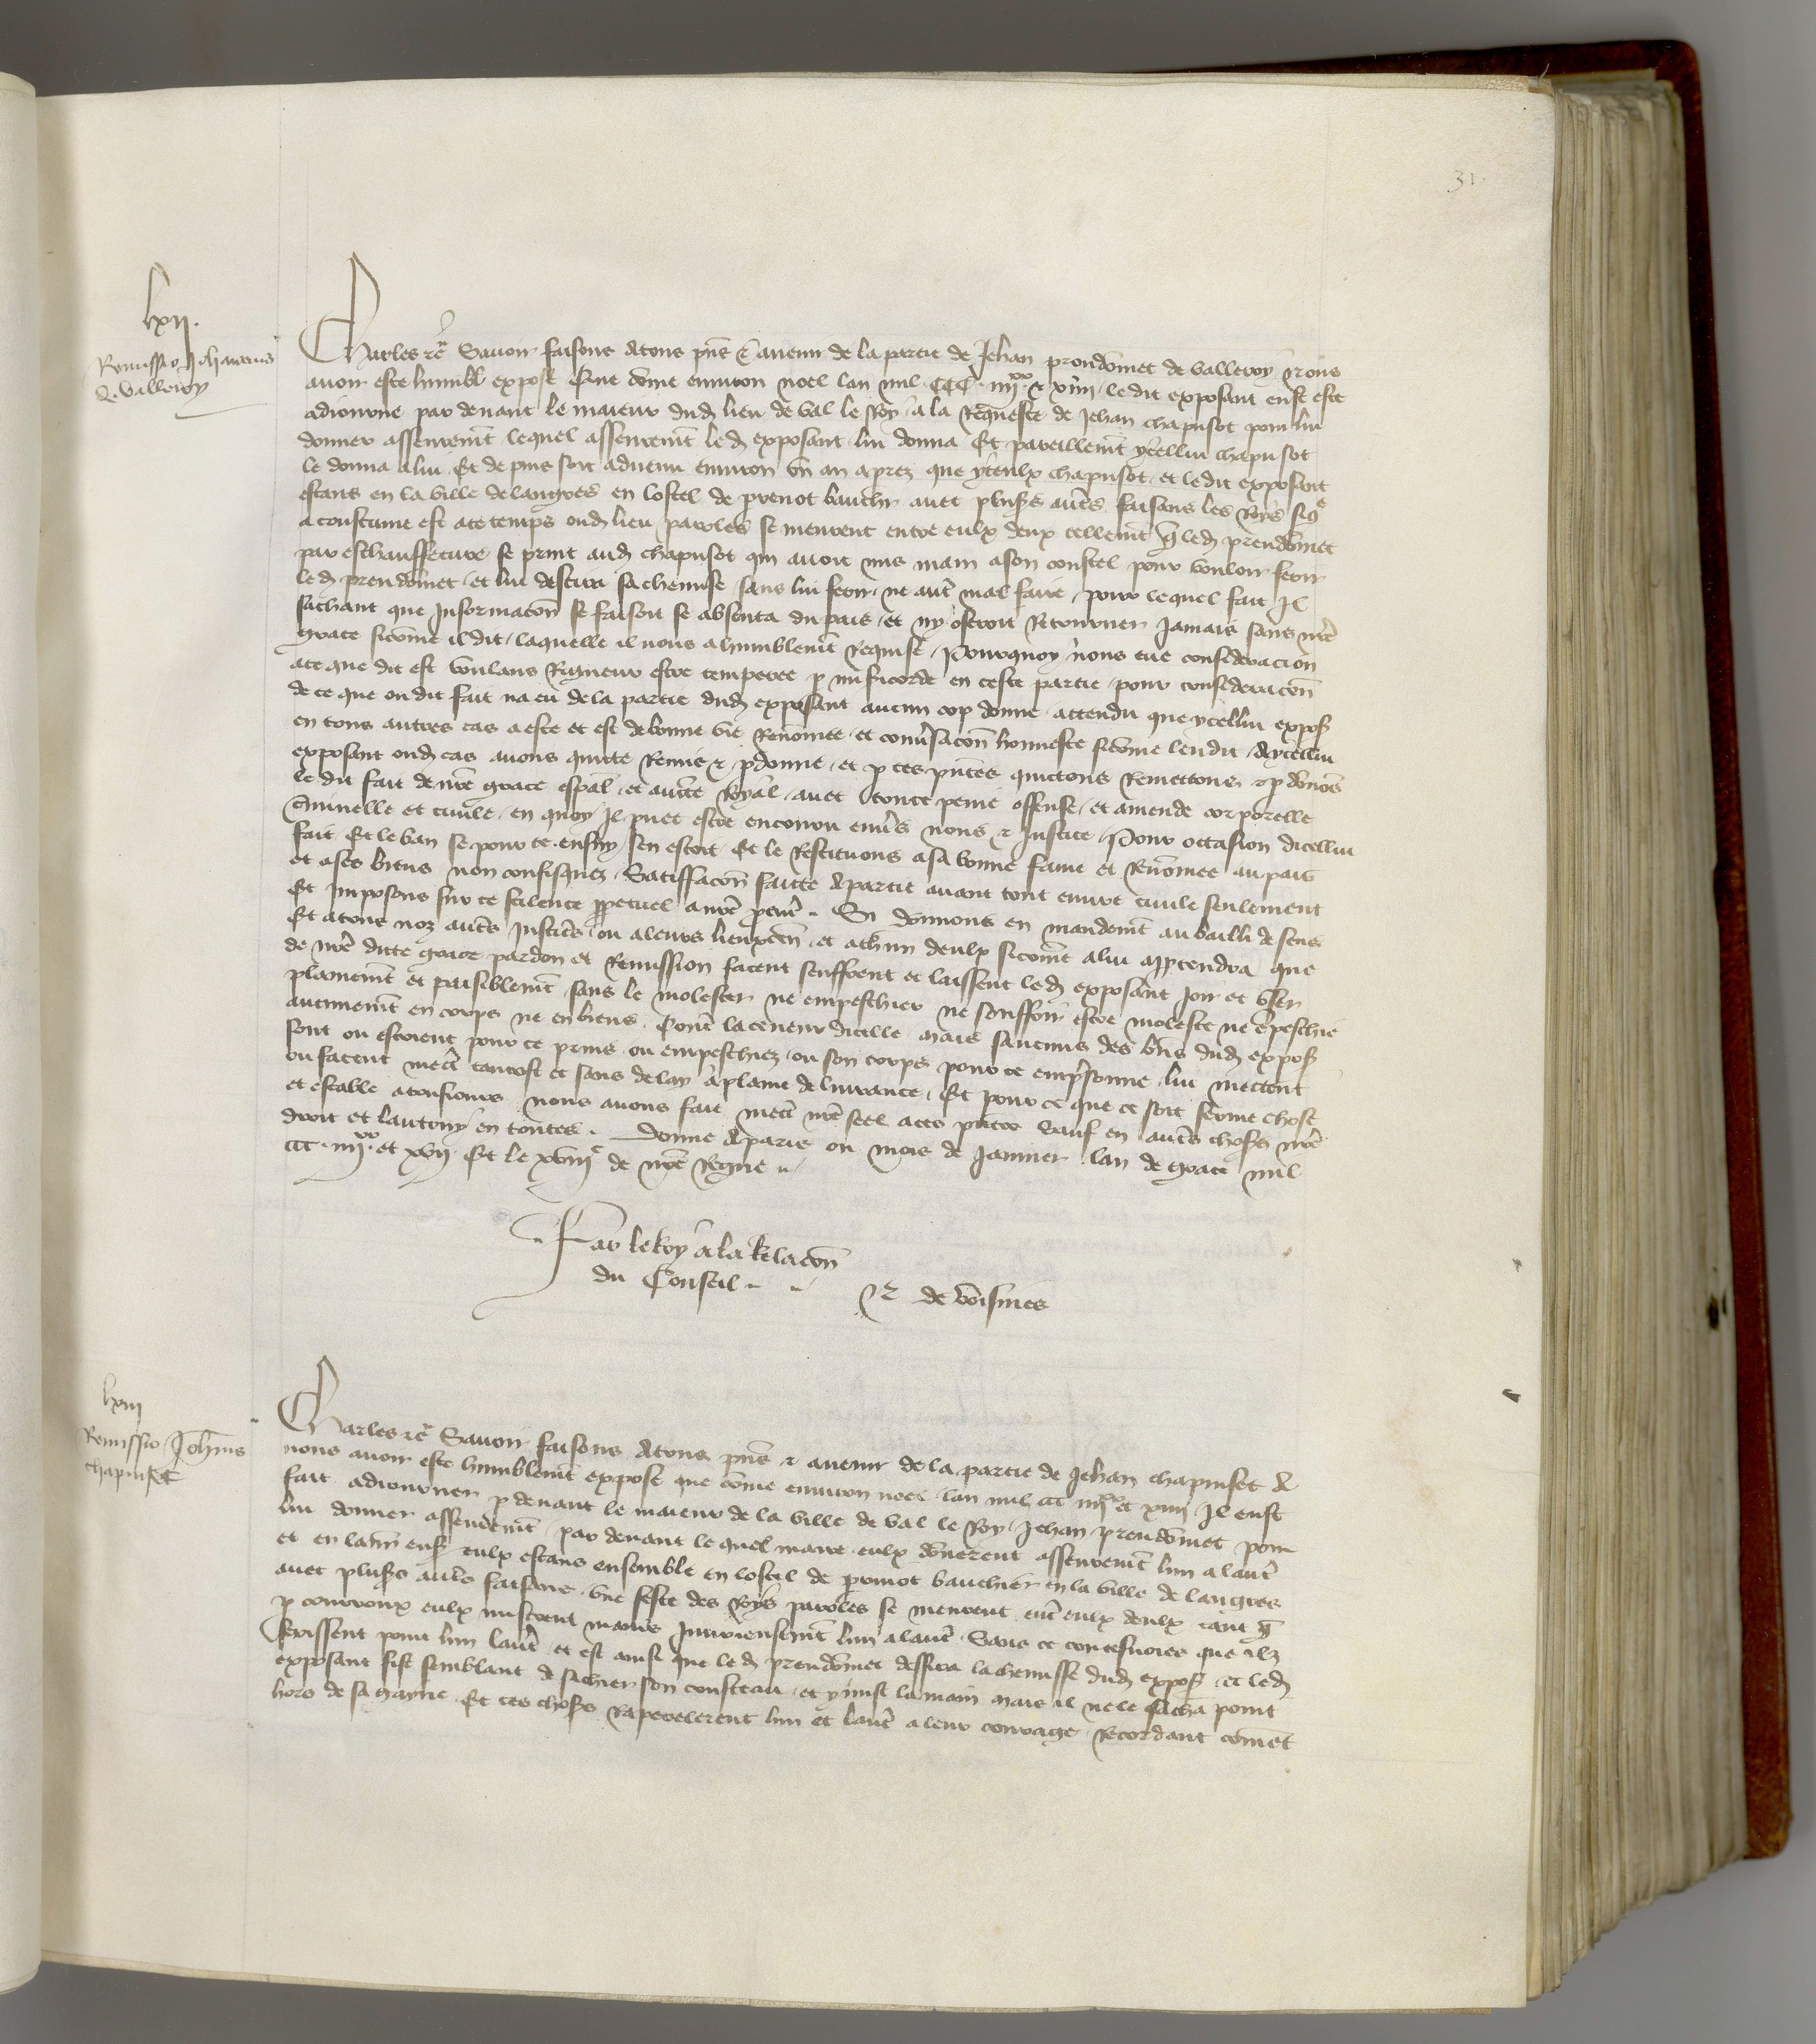 31
lxii.
Remissio Johannis
de Valleroy
Charles etc̃ Savoir faisons a tous pñs et avenir de la partie de Jehan preudõmet de valleroy Nous
avoir este humblẽ expose que cõme environ noel lan mil CCC iiijxx et xiiii ledit exposant eust este
adiourne par devant le maieur dud lieu de val le Roy a la requeste de Jehan chapuset pour lui
donner asseuremẽt lequel asseuremẽt led exposant lui donna Et pareillemẽt ycellui chapuset
le donna a lui Et depuis soit advenu environ un an aprez que yceulx chapuset et ledit exposant
estans en la ville de langres en lostel de perenot bauchr avec plus̃s aut̃s faisans les Roys sicõe
acoustume est a ce temps oud lieu paroles se meurent entre eulx deux tellemẽt q̃ led preudõmet
par eschauffeture se print aud chapuset qui avoit mis main a son coustel pour vouloir ferir
led preudõmet et lui descira sa chemise sans lui ferir ne aut̃ mal faire pour lequel fait Il
sachant que Informacõn se faisoit se absenta du pais et ny oseroit Retourner Jamais sans nr̃e
grace sicõme il dit laquelle il nous a humblemẽt requise Pourquoy nous eue consideracion
a ce que dit est voulans Rigueur estre temperee p̃ misericorde en ceste partie pour consideracõn
de ce que ou dit fait na eu de la partie dud exposant aucun cop donne attendu que ycellui expos̃
en tous autres cas a este et est de bonne vie renõmee et conv̾sacõn honneste sicõme len dit A ycellui
exposant oud cas avons quitte Remis et p̃donne et p̃ ces pñtes quictons Remettons et p̃donõs
le dit fait de nr̃e grace esp̃al et auct̃e Royal avec toute peine offense et amende corporelle
Criminelle et civile en quoy Il puet estre encouru env̾s nous et Justice Pour occasion dicellui
fait Et le ban se pour ce ensuy sen estoit Et le Restituons a sa bonne fame et Renõmee au pais
et a ses biens non confisquez Satiffacõn faitte a partie avant tout euvre civile seulement
Et Imposons sur ce scilence p̃petuel a nr̃e procur̃ Si donnons en mandemẽt au bailli de sens
Et a tous noz aut̃s Justicĩs ou a leurs lieuxten̄ et a ch̃un deulx sicõme a lui app̃tendra que
de nr̃e ditte grace pardon et Remission facent seuffrent et laissent led exposant Joir et user
plainemẽt et paisiblemẽt sans le molester ne empeschier ne souffrir estre moleste ne ẽpeschie
aucunemẽt en corps ne en biens cont̃ la teneur dicelle mais saucuns des bñs dud expos̃
sont ou estoient pour ce prins ou empeschiez ou son corps pour ce emp̃sonne lui mectent
ou facent mectr̃ tantost et sans delay a plaine delivrance Et pour ce que ce soit ferme chose
et estable a tousiours nous avons fait mectr̃ nr̃e seel a ces pñtes Sauf en aut̃s chos̃es nr̃e
droit et lautruy en toutes Donne a paris ou mois de Janvier lan de grace mil
CCC iiijxx et xvij Et le xviiie de nr̃e Regne
Par le Roy a la Relacõn
du Conseil
N de voisines
lxiii
Remissio Joh̃nis
chapuset
Charles etc̃ Savoir faisons a tous pñs et avenir de la partie de Jehan chapuset A
nous avoir este humblemẽt expose que cõme environ noel lan mil CCC iiijxx et xiiii Il eust
fait adiourner p̃ devant le maieur de la ville de val le Roy Jehan preudõmet pour
lui donner asseuremẽt par devant lequel maire eulx dõnerent asseuremẽt lun a laut̃
et en lann̄ ens̃ eulx estans ensemble en lostel de perinot bauchier en la ville de langres
avec plus̃s aut̃s faisans une feste des Roys paroles se meurent ent̃ eulx deulx tant q̃
p̃ courroux eulx mistrent mains Iniurieusemẽt lun a laut̃ Sans ce contesvoies que ilz
ferissent point lun laut̃ et est ainsi que led preudõmet dessira la chemisse dud expos̃ et led
exposant fist semblant de sachier son cousteau et y mist la main mais il ne le sacha point
hors de sa gayne Et ces chos̃es rapporterent lun et laut̃ a leur courage Recordant cõmẽt